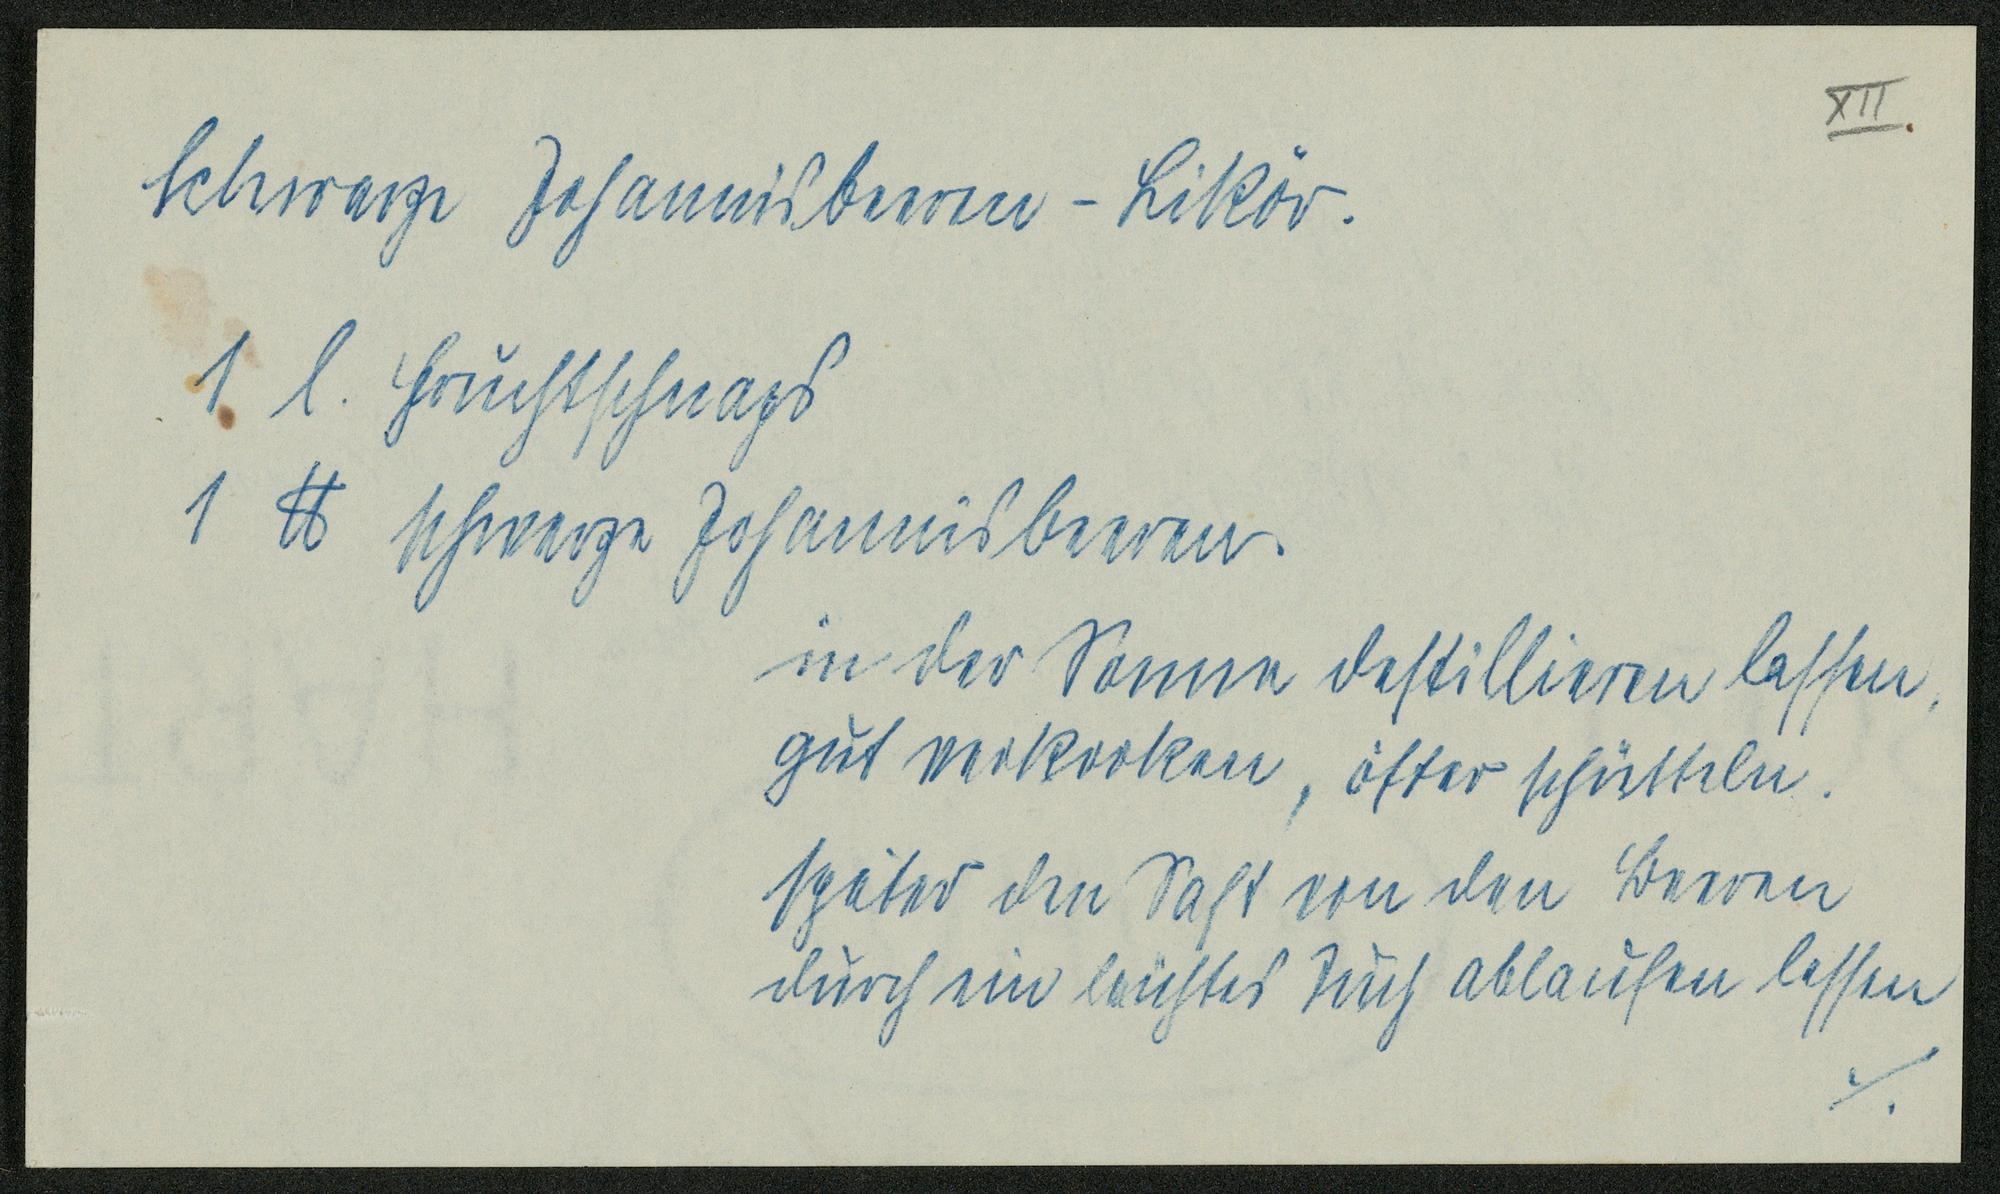 XII.
Schwarze Johannisbeeren-Likör.
1 l. Fruchtschnaps
1 ℔ schwarze Johannisbeeren.
in der Sonne destillieren lassen,
gut verkorken, öfter schütteln.
später den Saft von den Beeren
durch ein leichtes Tuch ablaufen lassen
./.